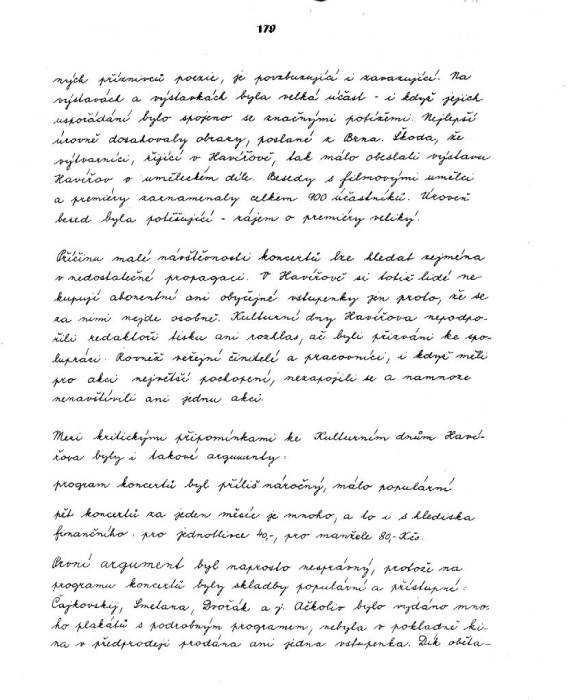 179
ných příznivců poezie, je povzbuzující i zavazující. Na
výstavách a výstavkách byla velká účast - i když jejich
uspořádání bylo spojeno se značnými potížemi. Nejlepší
úrovně dosahovaly obrazy, poslané z Brna. Škoda, že
výtvarníci, žijící v Havířově, tak málo obeslali výstavu
Havířov v uměleckém díle. Besedy s filmovými umělci
a premiéry zaznamenaly celkem 900 účastníků. Úroveň
besed byla potěšující - zájem o premiéry veliký.
Příčinu malé návštěvnosti koncertů lze hledat zejména
v nedostatečné propagaci. V Havířově si totiž lidé ne-
kupují abonentní ani obyčejné vstupenky jen proto, že se
za nimi nejde osobně. Kulturní dny Havířova nepodpo-
řili redaktoři tisku ani rozhlas, ač byli přizváni ke spo-
lupráci. Rovněž veřejní činitelé a pracovníci, i když měli
pro akci největší pochopení, nezapojili se a namnoze
nenavštívili ani jednu akci.
Mezi kritickými připomínkami ke Kulturním dnům Haví-
řova byly i takové argumenty:
program koncertů byl příliš náročný, málo populární
pět koncertů za jeden měsíc je mnoho, a to i s hlediska
finančního: pro jednotlivce 40,-, pro manžele 80,- Kčs.
První argument byl naprosto nesprávný, protože na
programu koncertů byly skladby populární a přístupné:
Čajkovskij, Smetana, Dvořák a j. Ačkoliv bylo vydáno mno-
ho plakátů s podrobným programem, nebyla v pokladně ki-
na v předprodeji prodána ani jedna vstupenka. Dík oběta-